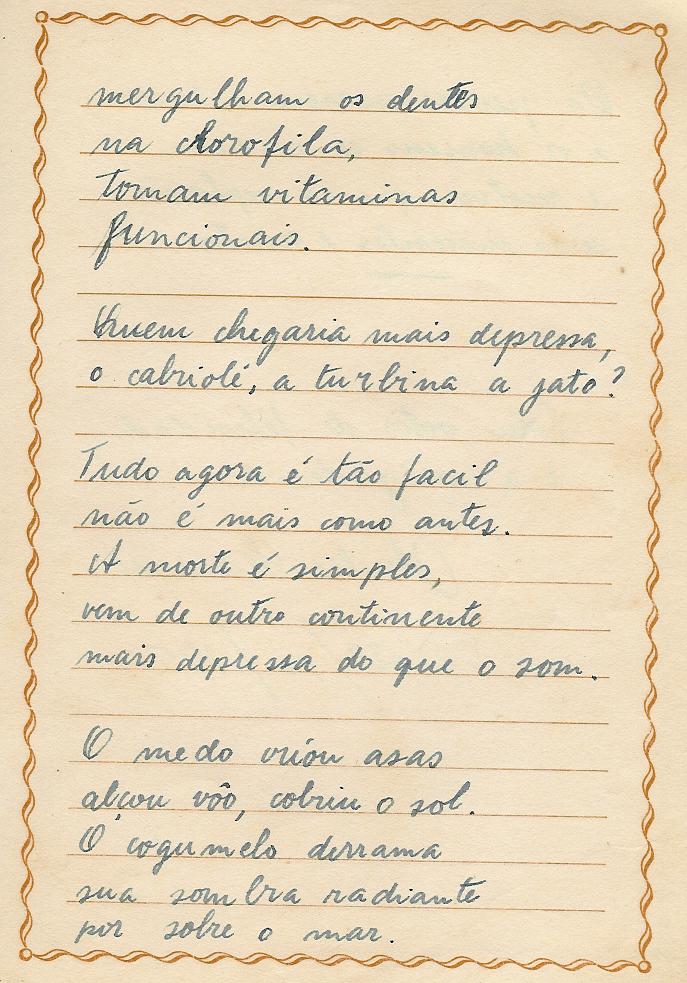 mergulham os dentes
na clorofila,
tomam vitaminas
funcionais.
Quem chegaria mais depressa,
o cabriolé, a turbina a jato?
Tudo agora é tão facil
não é mais como antes.
A morte é simples,
vem de outro continente
mais depressa do que o som.
O medo criou asas
alçou vôo, cobriu o sol.
O cogumelo derrama
sua sombra radiante
por sobre o mar.